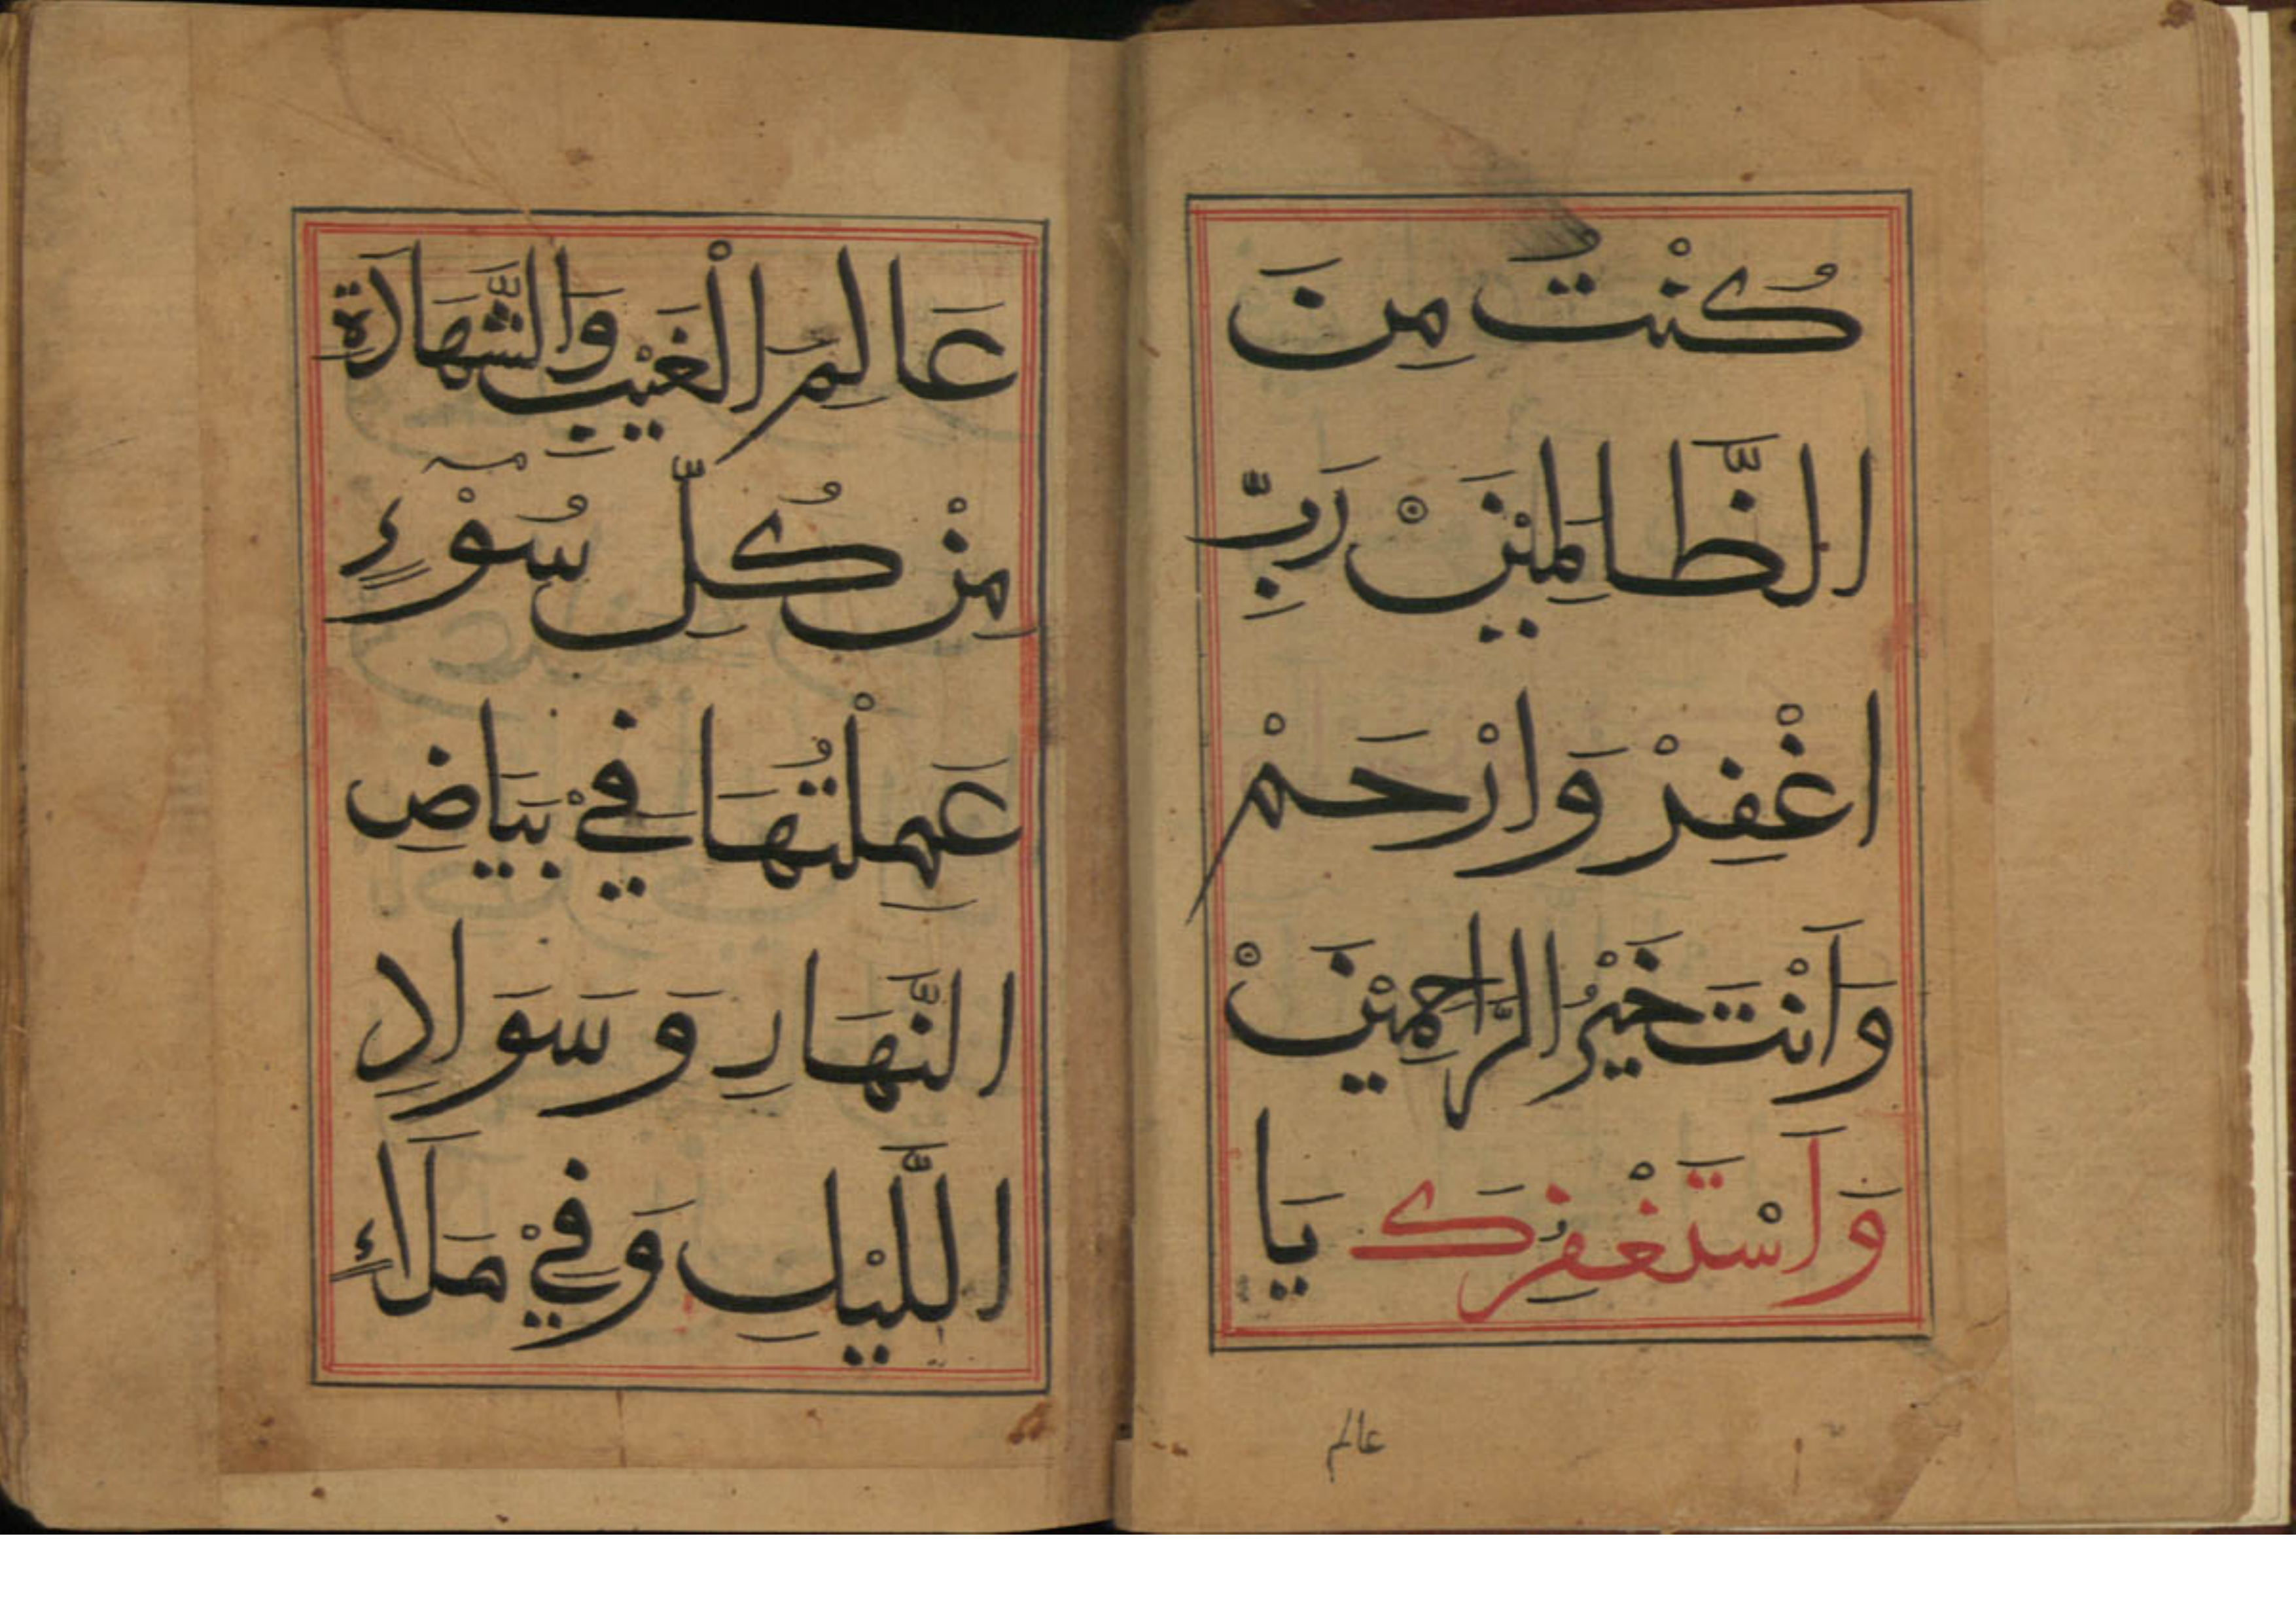 كُنْتُ مِنَ
الظَّالَمِيْنَ رَبِّ
اغْفِرْ وَارْحَمْ
وَاَنْتَ خَيْرُ الرَّاحِمِيْنَ
وَاَسْتَغْفِرُكَ يَا
عالم
عَالِمَ الْغَيْبِ وَالشَّهَادَةِ
مِنْ كُلِّ سُوْءٍ
عَمِلْتُهَا فِيْ بَيَاضِ
النَّهَارِ وَسَوَادِ
اللَّيْلِ وَفِيْ مَلَاءٍ